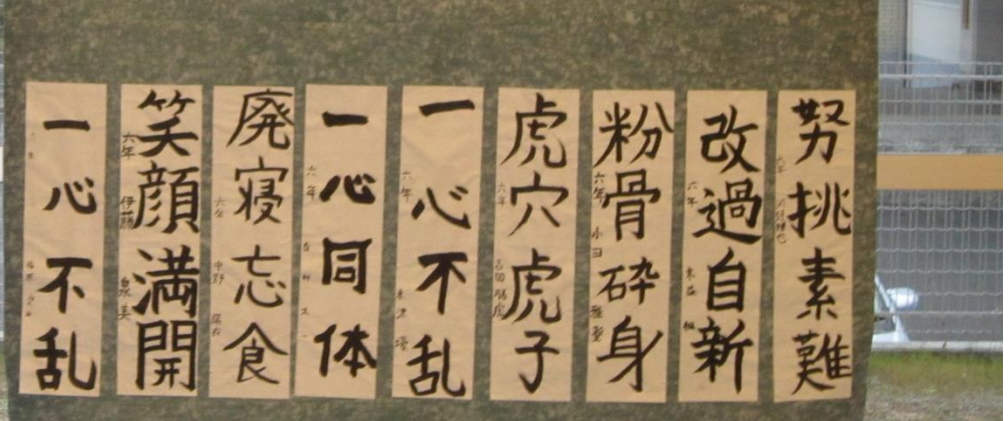 努挑素難
六年
改過自新
六年
粉骨砕身
六年 小田 雅聖
虎穴虎子
六年 吉田
一心不乱
六年
一心同体
六年
廃寝忘食
六年 中野
笑顔満開
六年 伊藤
一心不乱